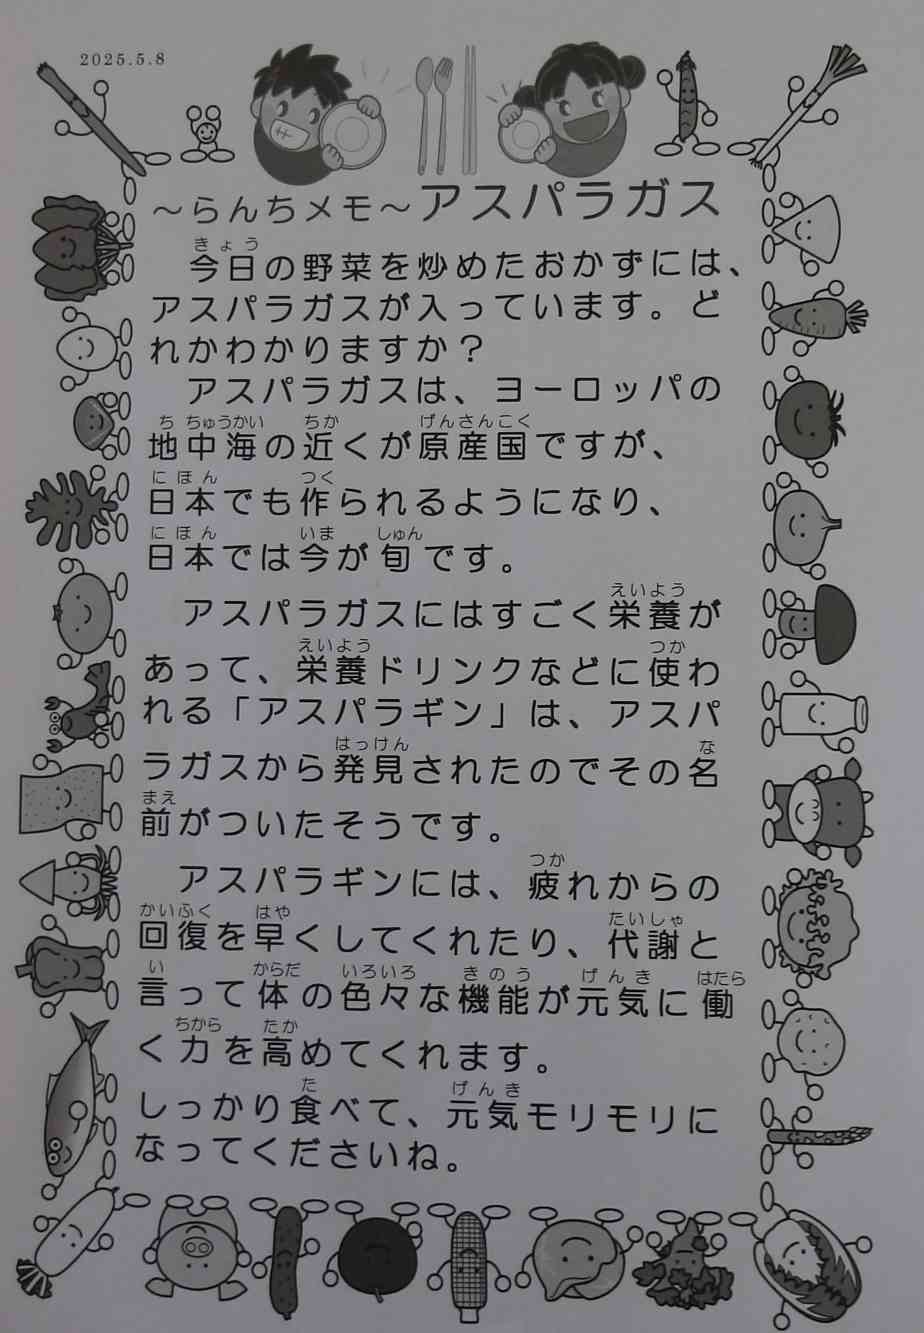 2025.5.8
～らんちメモ～アスパラガス
きょう
今日の野菜を炒めたおかずには、
アスパラガスが入っています。ど
れかわかりますか？
アスパラガスは、ヨーロッパの
ち ちゅうかい ちか げんさんこく
地中海の近くが原産国ですが、
にほん つく
日本でも作られるようになり、
にほん いま しゅん
日本では今が旬です。
えいよう
アスパラガスにはすごく栄養が
えいよう つか
あって、栄養ドリンクなどに使わ
れる「アスパラギン」は、アスパ
はっけん な
ラガスから発見されたのでその名
まえ
前がついたそうです。
つか
アスパラギンには、疲れからの
かいふく はや たいしゃ
回復を早くしてくれたり、代謝と
い からだ いろいろ きのう げんき はたら
言って体の色々な機能が元気に働
ちから たか
く力を高めてくれます。
た げんき
しっかり食べて、元気モリモリに
なってくださいね。